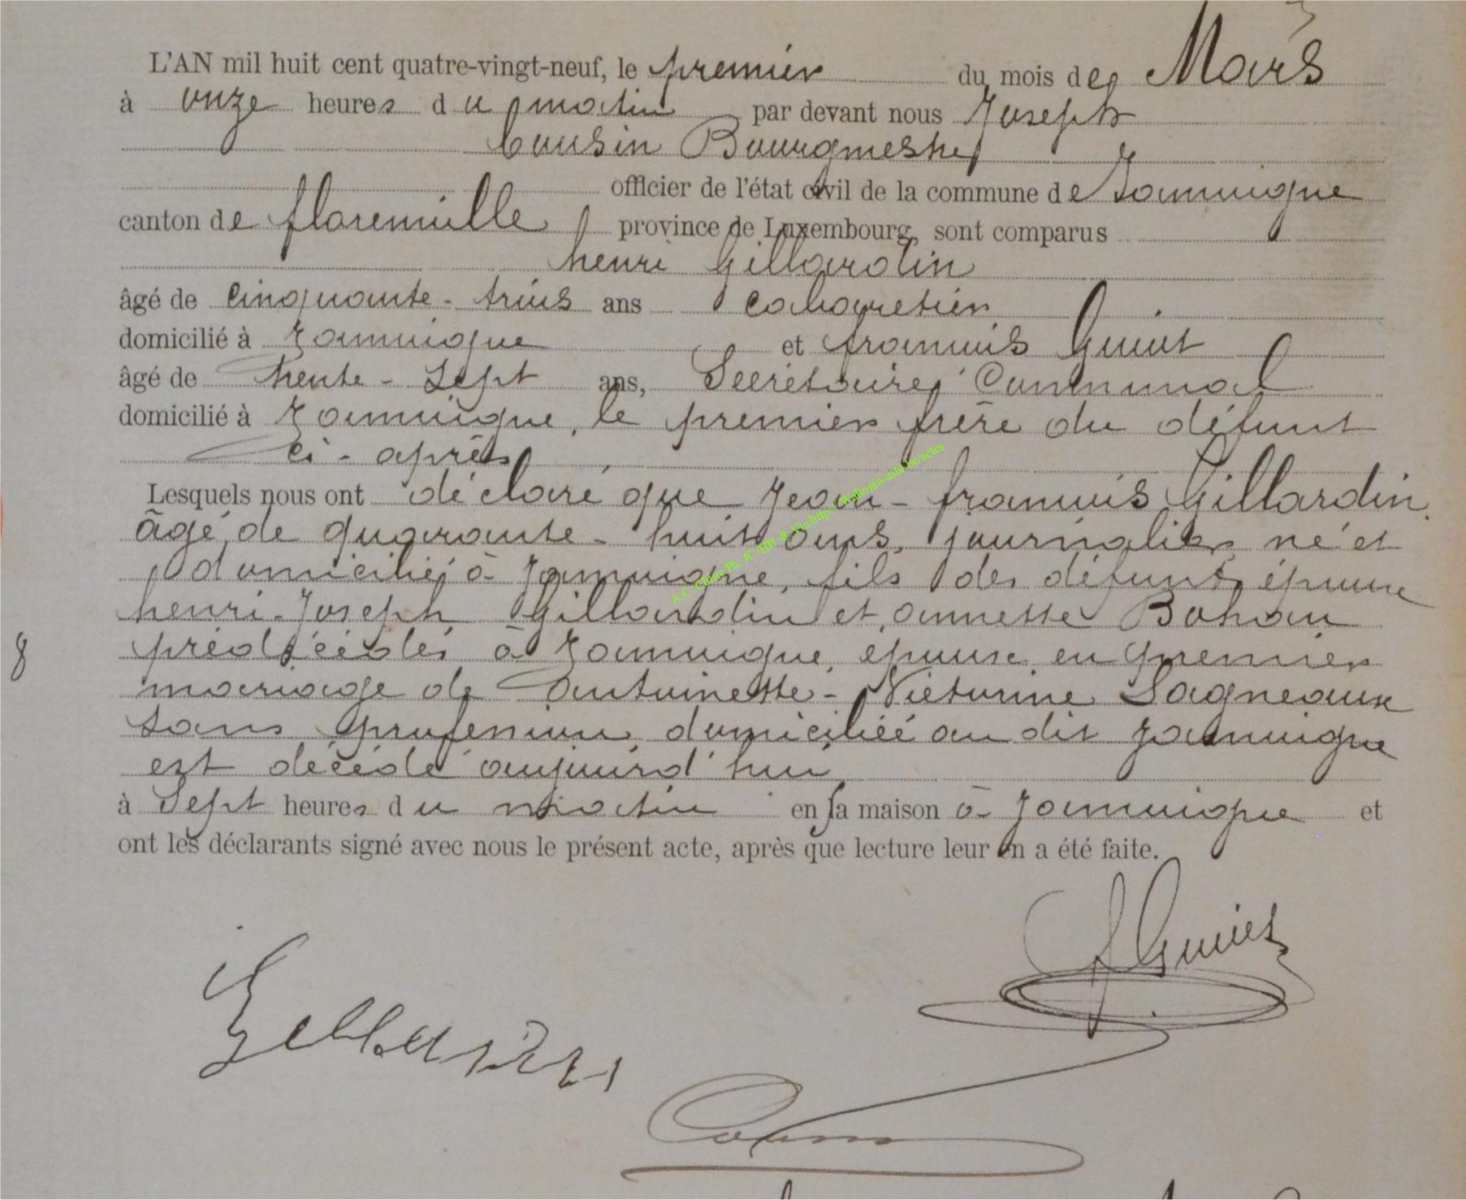 L'AN mil huit cent quatre-vingt-neuf, le premier du mois de Mars
à onze heures du matin par devant nous Joseph
Cousin Bourgmestre
officier de l'état civil de la commune de Jamoigne
canton de florenville province de Luxembourg, sont comparus
henri Gillardin
âgé de cinquante-trois ans cabaretier
domicilié à Jamoigne et françois Guiot
âgé de trente-Sept ans, Secrétaire Communal
domicilié à Jamoigne, le premier frère du défunt
ci-après
Lesquels nous ont déclaré que Jean-françois Gillardin,
âgé de quarante-huit ans, journalier, né et
domicilié à Jamoigne, fils des défunts époux
henri-Joseph Gillardin et annette
prédécédés à Jamoigne, époux en premier
mariage de antoinette-Victorine Lagneaux
sans profession domiciliée au dit Jamoigne
est décédé aujourd'hui,
à Sept heures du matin en sa maison à Jamoigne et
ont les déclarants signé avec nous le présent acte, après que lecture leur en a été faite.
8
Guiot
Gillardin
Cousin